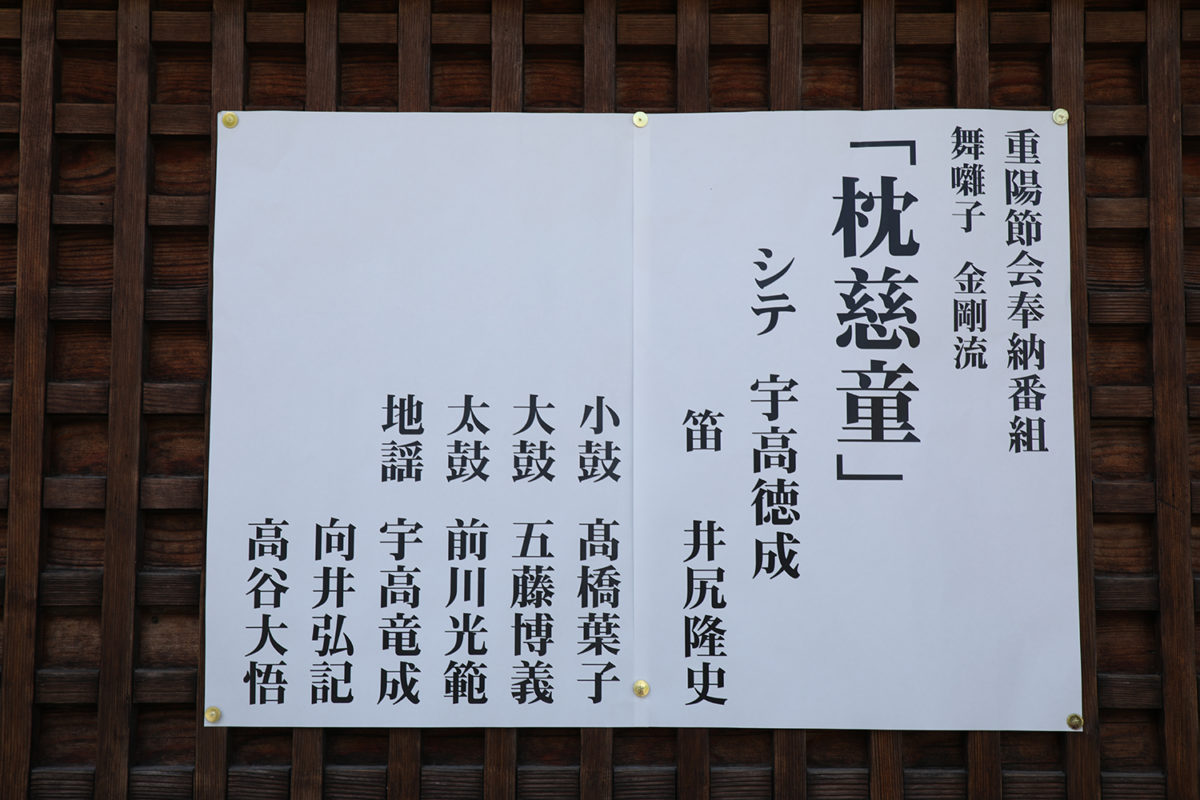 重陽節会奉納番組
舞囃子 金剛流
「枕慈童」
シテ 宇高徳成
笛 井尻隆史
小鼓 髙橋葉子
大鼓 五藤博義
太鼓 前川光範
地謡 宇高竜成
向井弘記
高谷大悟